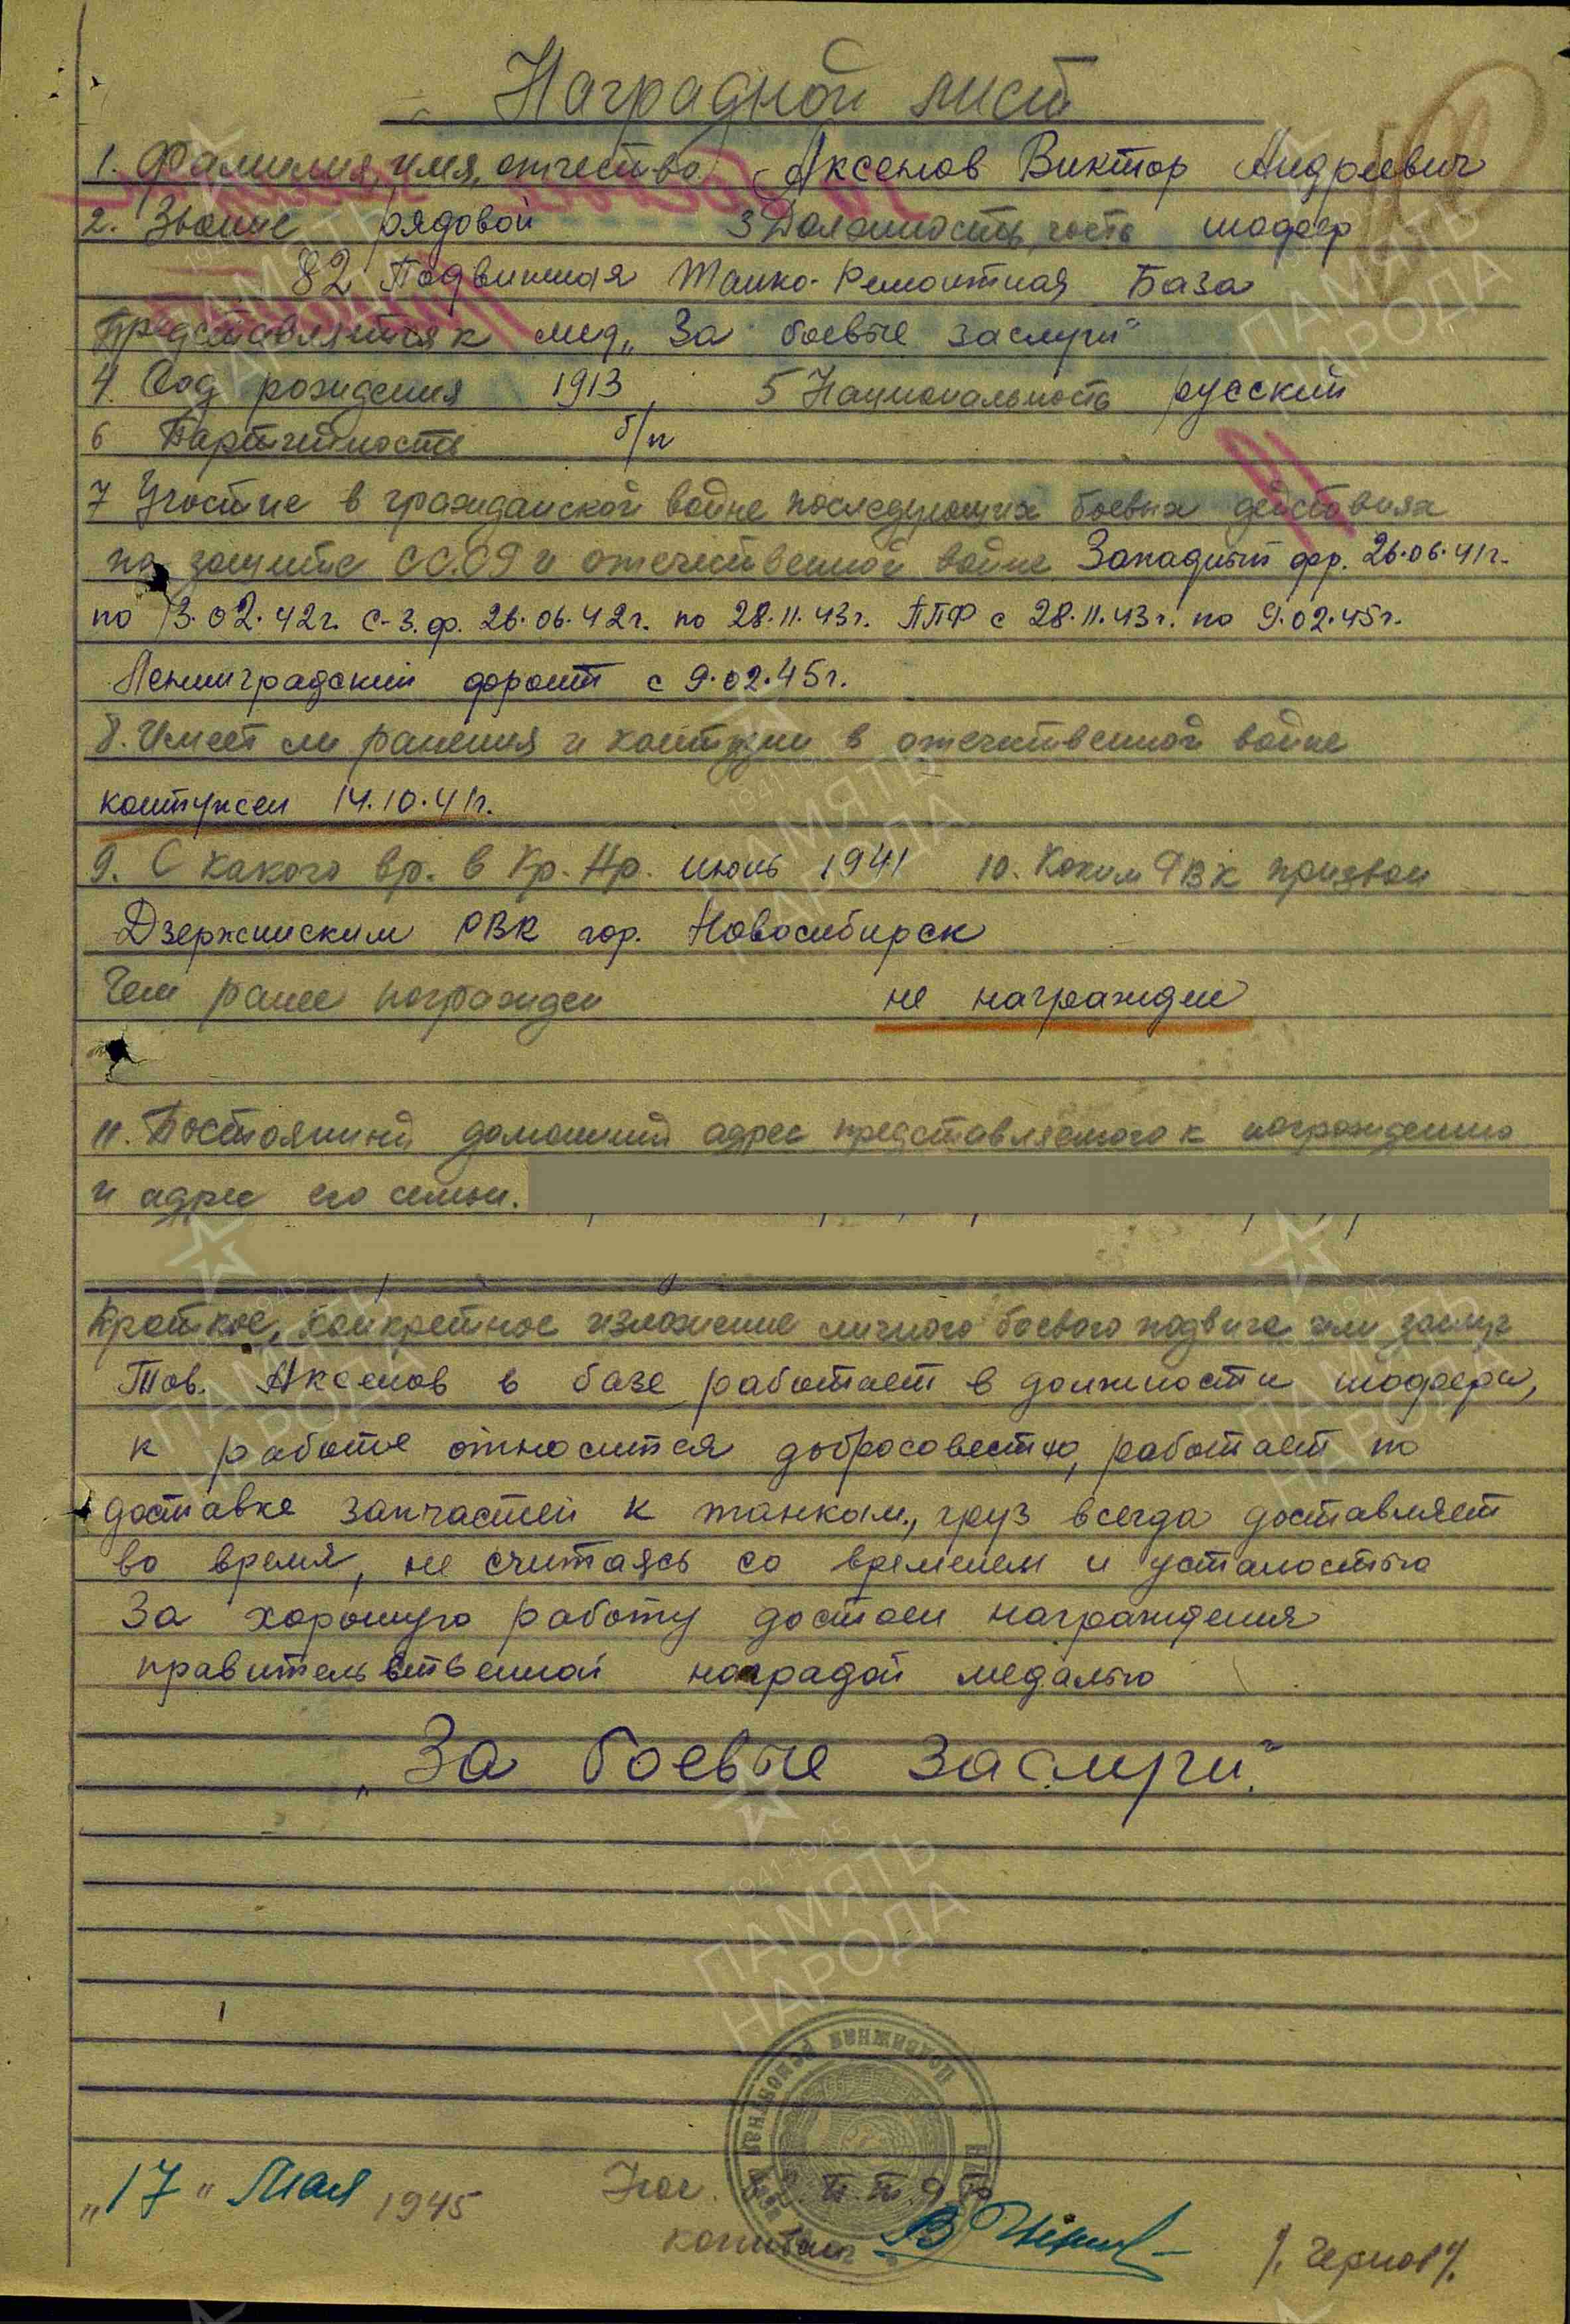 Наградной лист
1. Фамилия, имя, отчество Аксенов Виктор Андреевич
2. Звание рядовой 3 Должность, часть шофер
82 Подвижная Танко-Ремонтная База
Представляется к мед. „За боевые заслуги“
4. Год рождения 1913 5 Национальность русский
6 Партийность б/п
7 Участие в гражданской войне последующих боевых действиях
по защите СССР и отечественной войне Западный фр. 26.06.41г.
по 13.02.42г. С-З.ф. 26.06.42г. по 28.11.43г. ППФ с 28.11.43г. по 9.02.45г.
Ленинградский фронт с 9.02.45г.
8. Имеет ли ранения и контузии в отечественной войне
контужен 14.10.41г.
9. С какого вр. в Кр. Ар. июнь 1941 10. Каким РВК призван
Дзержинским РВК гор. Новосибирск
Чем ранее награжден не награжден
11. Постоянный домашний адрес представляемого к награждению
и адрес его семьи.
Краткое, конкретное изложение личного боевого подвига или заслуг
Тов. Аксенов в базе работает в должности шофера,
к работе относится добросовестно, работает по
доставке запчастей к танкам, груз всегда доставляет
во время, не считаясь со временем и усталостью
За хорошую работу достоен награждения
правительственной наградой медалью
„За боевые заслуги“
„17“ Мая 1945 Нач. 82 П.Т.Р.Б
капитан /Чернов/
ПАМЯТЬ НАРОДА
1941-1945